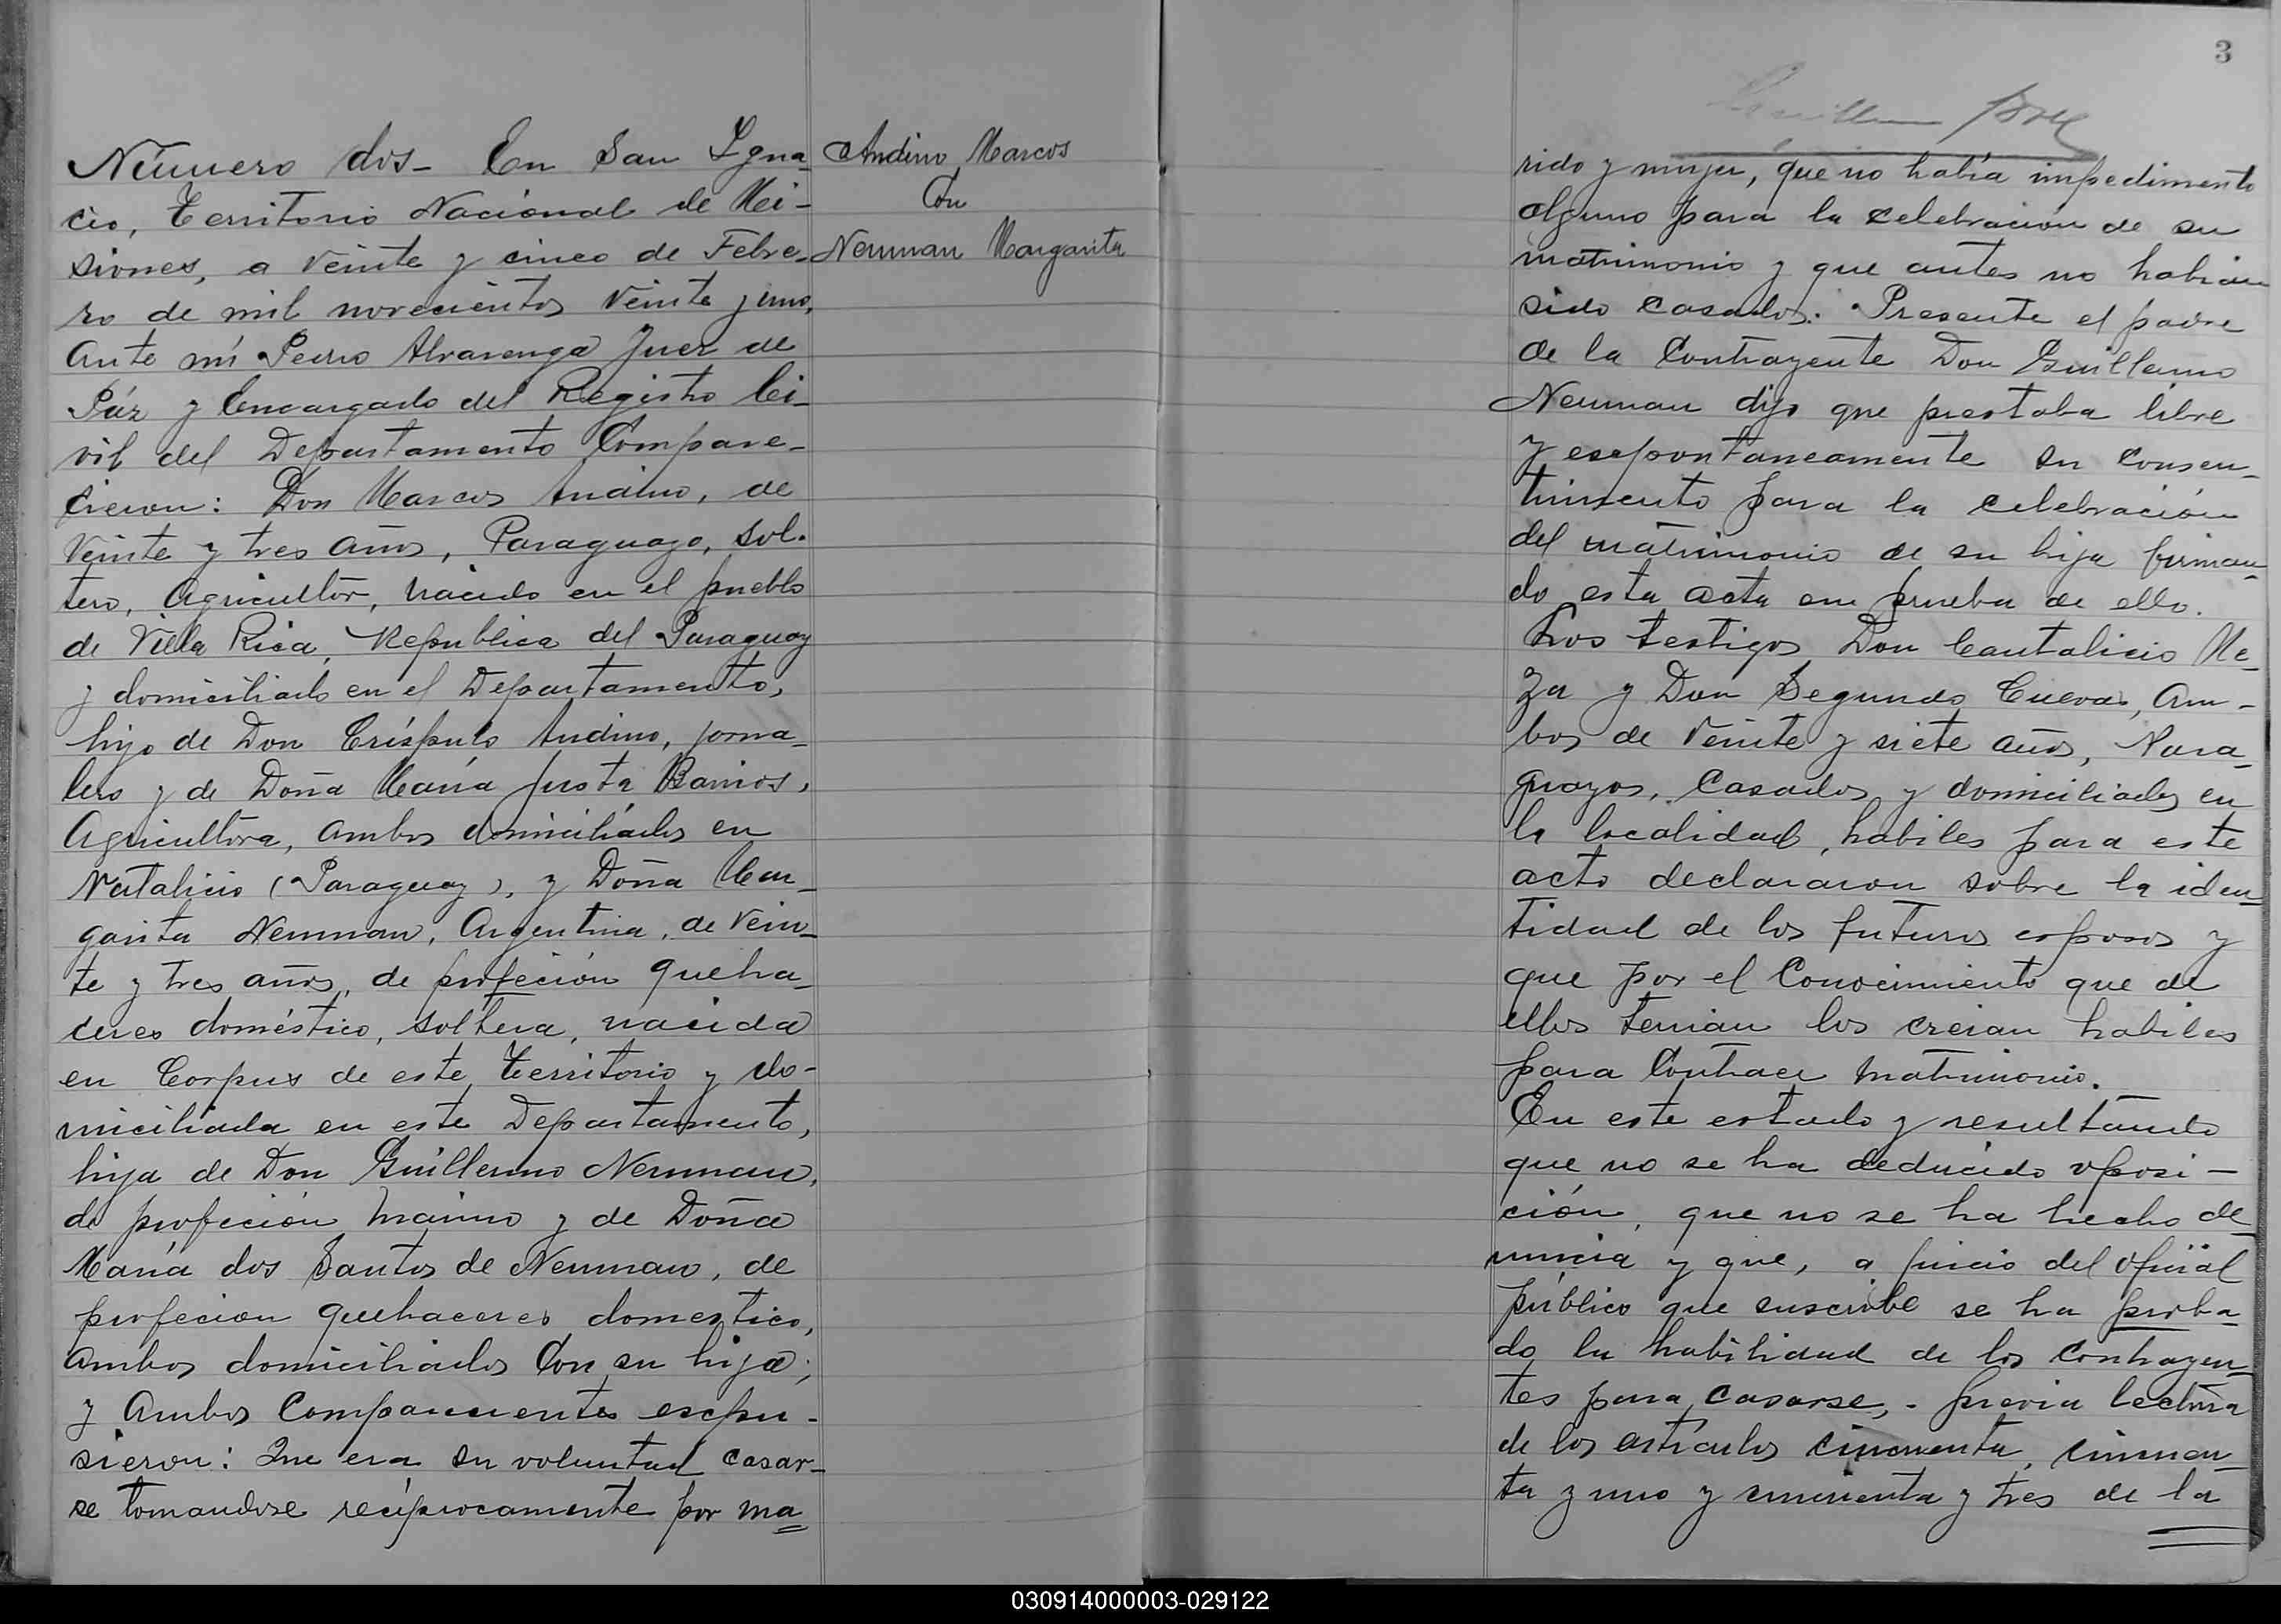 Número dos- En San Ygna-
cio, Territorio Nacional de Mi-
siones, a veinte y cinco de Febre-
ro de mil novecientos veinte y uno,
Ante mí Pedro Alvarenga Juez de
Páz y Encargado del Registro Ci-
vil del Departamento Compare-
cieron: Don Marcos Andino, de
veinte y tres años, Paraguayo, sol-
tero, Agricultor, nacido en el pueblo
de Villa Rica, Republica del Paraguay
y domiciliado en el Departamento,
hijo de Don Críspulo Andino, jorna-
lero y de Doña María Justa Barrios,
Agricultora, ambos domiciliados en
Natalicio (Paraguay), y Doña Mar-
garita Neuman, Argentina, de vein-
te y tres años, de profeción queha-
ceres doméstico, soltera, nacida
en Corpus de este Territorio y do-
miciliada en este Departamento,
hija de Don Guillermo Neuman,
de profeción marino y de Doña
María dos Santos de Neuman, de
profecion quehaceres domestico,
ambos domiciliados con su hija;
y Ambos Comparecientes espu-
sieron: Que era su voluntad casar-
se tomandose recíprocamente por ma
Andino Marcos
Con
Neuman Margarita
3
rido y mujer, que no había impedimento
alguno para la celebración de su
matrimonio y que antes no habían
sido casados. Presente el padre
de la Contrayente Don Guillermo
Neuman dijo que prestaba libre
y espontaneamente su consen-
timiento para la celebración
del matrimonio de su hija firman-
do esta acta en prueba de ello.
Los testigos Don Cantalicio Me-
za y Don Segundo Cuevas, Am-
bos de veinte y siete años, Para-
guayos, Casados y domiciliados en
la localidad, habiles para este
acto declararon sobre la iden-
tidad de los futuros esposos y
que por el Conocimiento que de
ellos tenian los creian habiles
para Contraer matrimonio.
En este estado y resultando
que no se ha deducido oposi-
ción, que no se ha hecho de
nuncia y que, a juicio del oficial
público que suscribe se ha proba-
do la habilidad de los contrayen-
tes para casarse,- previa lectura
de los artículos cincuenta, cincuen-
ta y uno y cincuenta y tres de la
030914000003-029122